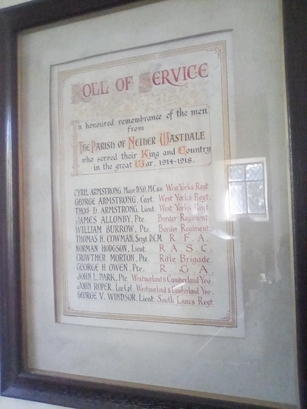 ROLL OF SERVICE
In honoured remembrance of the men
from
THE PARISH OF NETHER WASTDALE
who served their King and Country
in the great War, 1914-1918.
CYRIL ARMSTRONG, Major D.S.O., M.C. West Yorks Regt.
GEORGE ARMSTRONG, Capt. West Yorks Regt.
THOS D. ARMSTRONG, Lieut. West Yorks Regt.
JAMES ALLONBY, Pte. Border Regiment.
WILLIAM BURROW, Pte. Border Regiment.
THOMAS H. COWMAN, Sergt. D.C.M. R. F. A.
NORMAN HODGSON, Lieut. R. A. S. C.
CROWTHER MORTON, Pte. Rifle Brigade.
GEORGE H. OWEN, Pte. R. G. A.
JOHN L. PARK, Pte. Westmorland & Cumberland Yeo.
JOHN ROPER, Lce Cpl. Westmorland & Cumberland Yeo.
GEORGE V. WINDSOR, Lieut. South Lancs Regt.